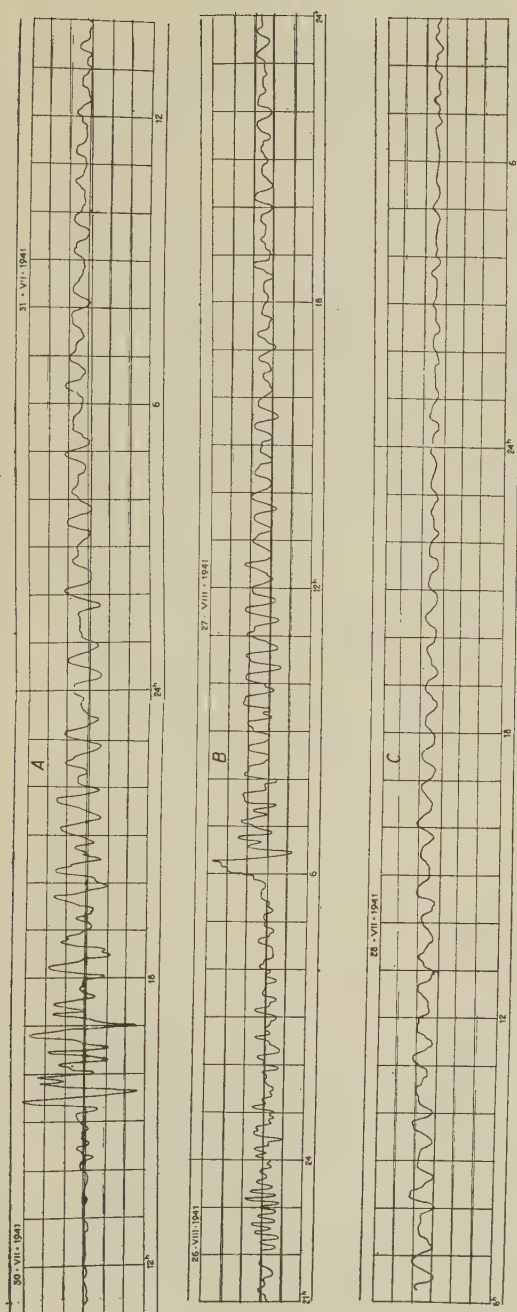 30 • VII • 1941
31 • VII • 1941
A
12h
18
24h
6
12
26 • VIII • 1941
27 • VIII • 1941
B
21h
24
6
12h
18
24h
28 • VII • 1941
C
6h
12
18
24h
6